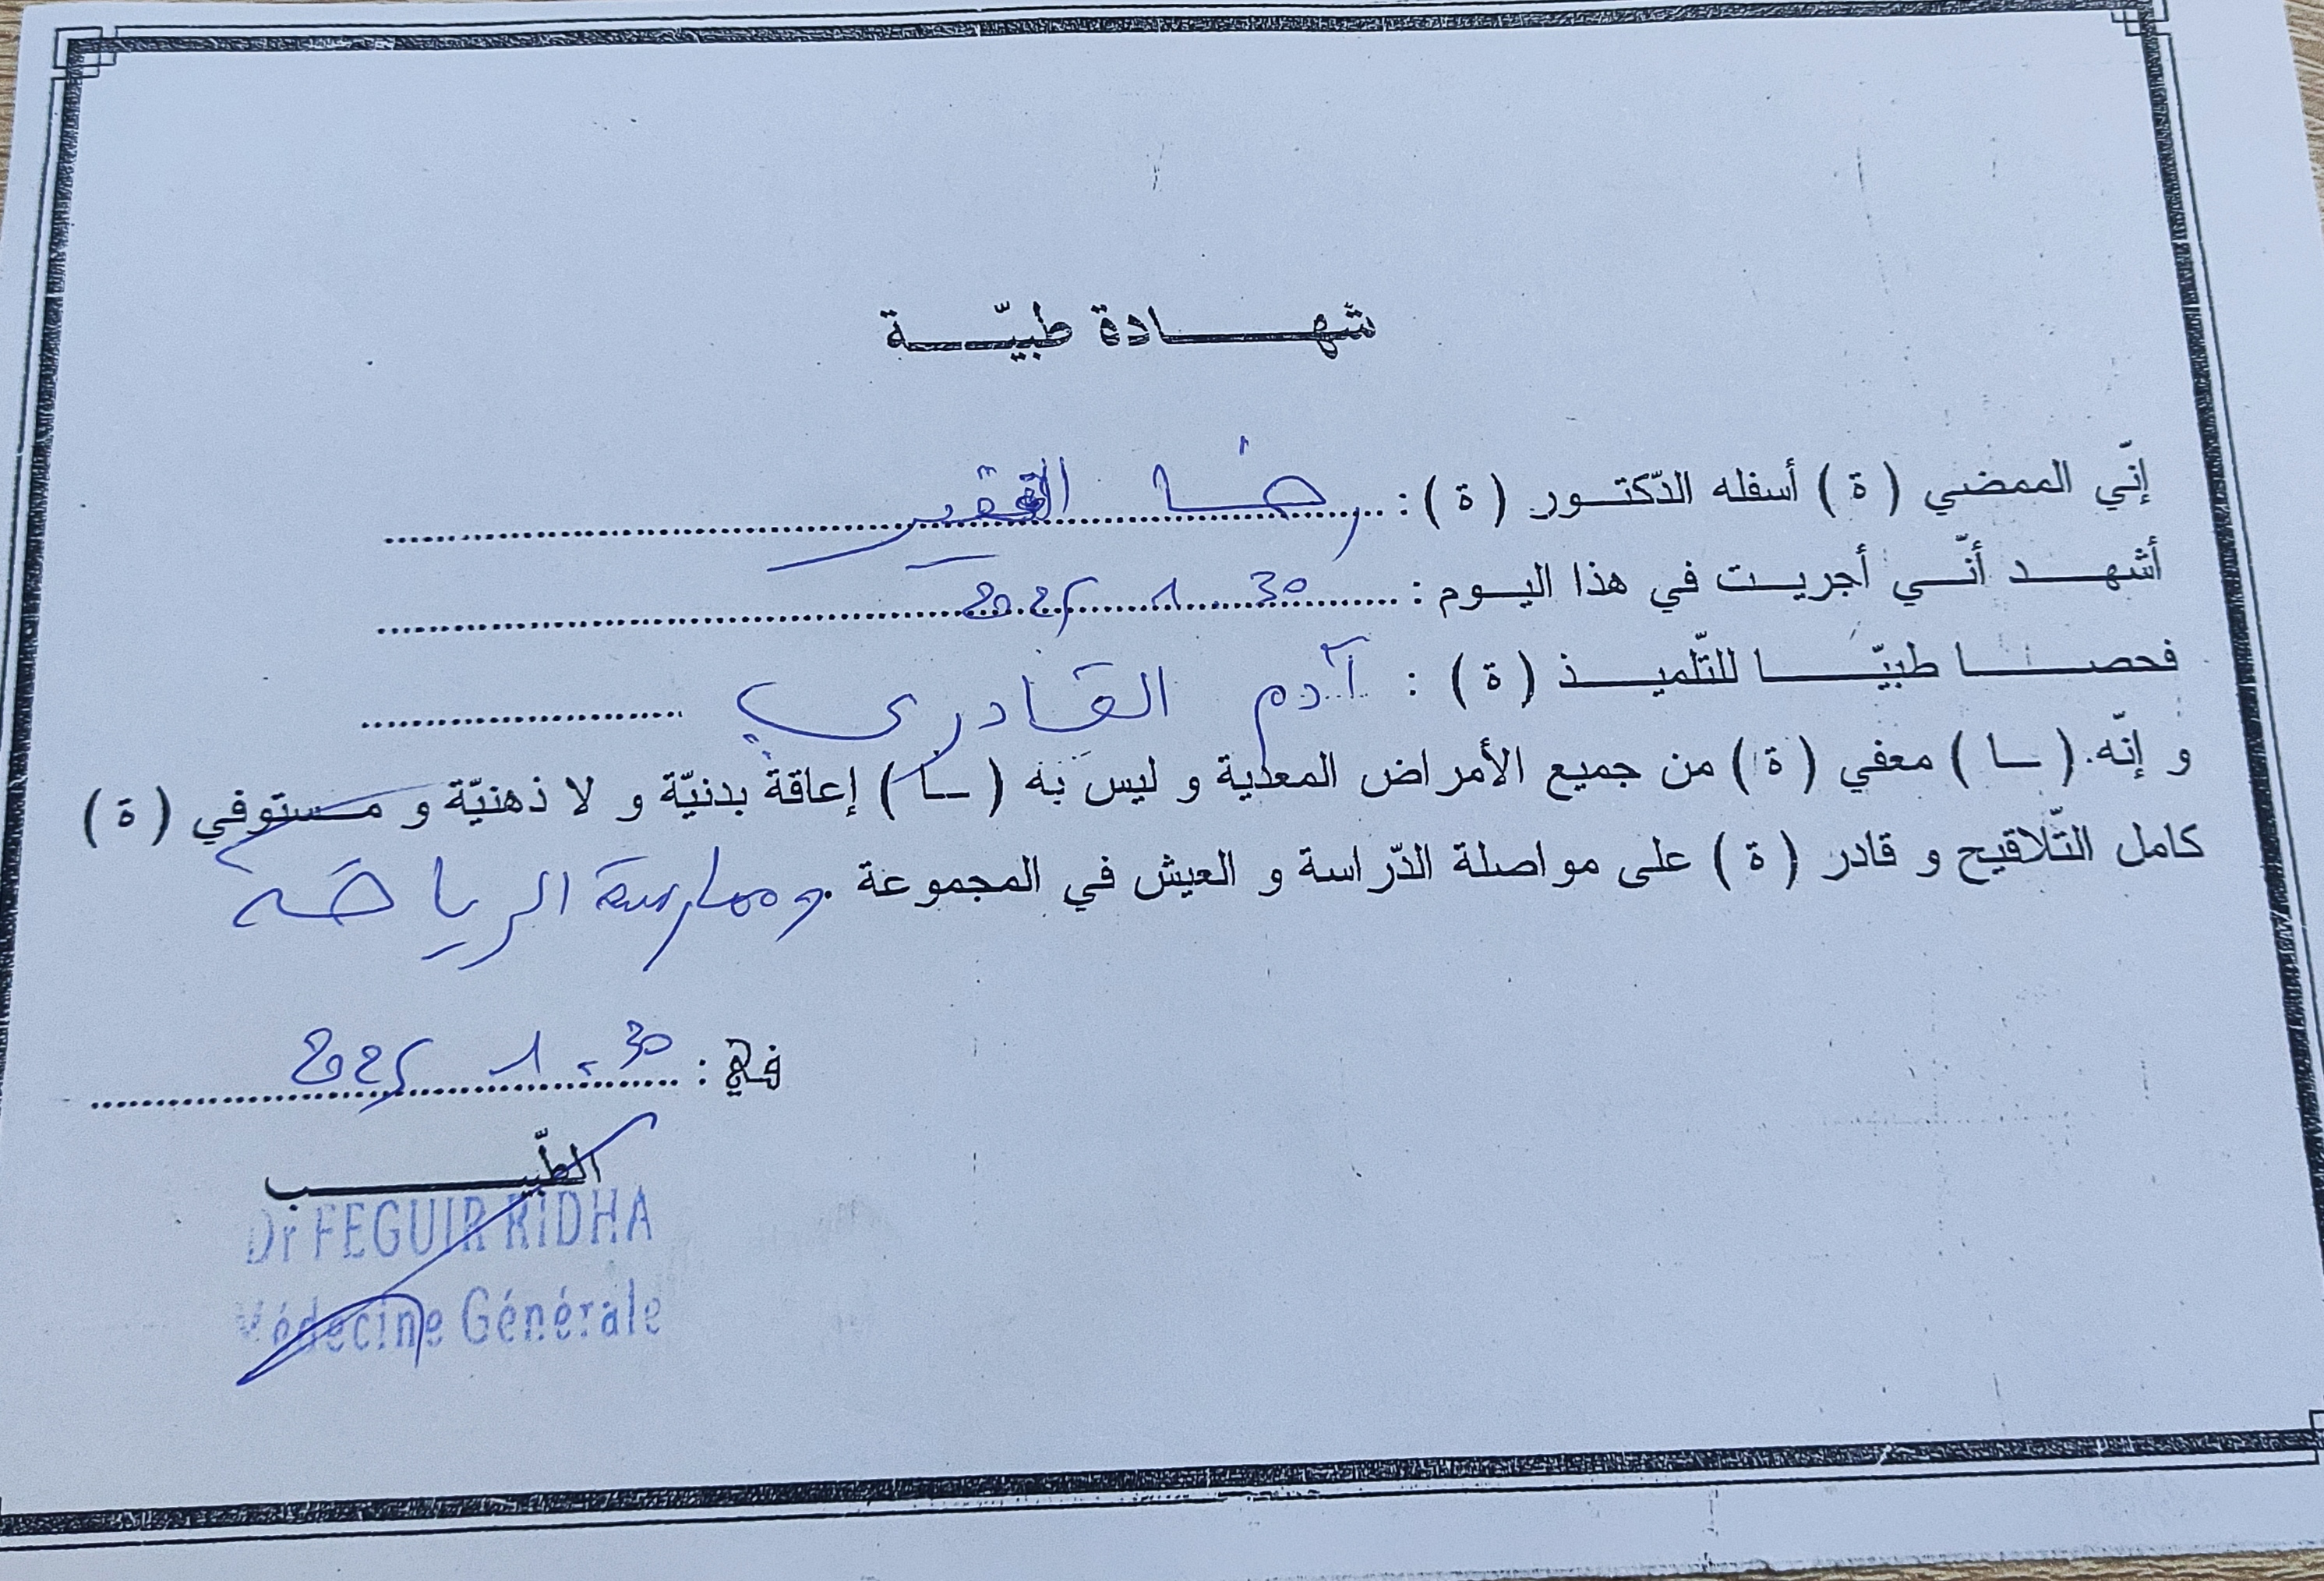 شهادة طبيّة
إنّي الممضي (ة) أسفله الدّكتور (ة) : رضا الفقير
أشهد أنّي أجريت في هذا اليوم : 30 1 2025
فحصا طبيّا للتّلميذ (ة) : آدم القادري
و إنّه (ـا) معفي (ة) من جميع الأمراض المعدية و ليس به (ـا) إعاقة بدنيّة و لا ذهنيّة و مستوفي (ة)
كامل التّلاقيح و قادر (ة) على مواصلة الدّراسة و العيش في المجموعة . وممارسة الرياضة
في : 30 - 1 2025
الطّبيب
Dr FEGUIR RIDHA
Médecine Générale